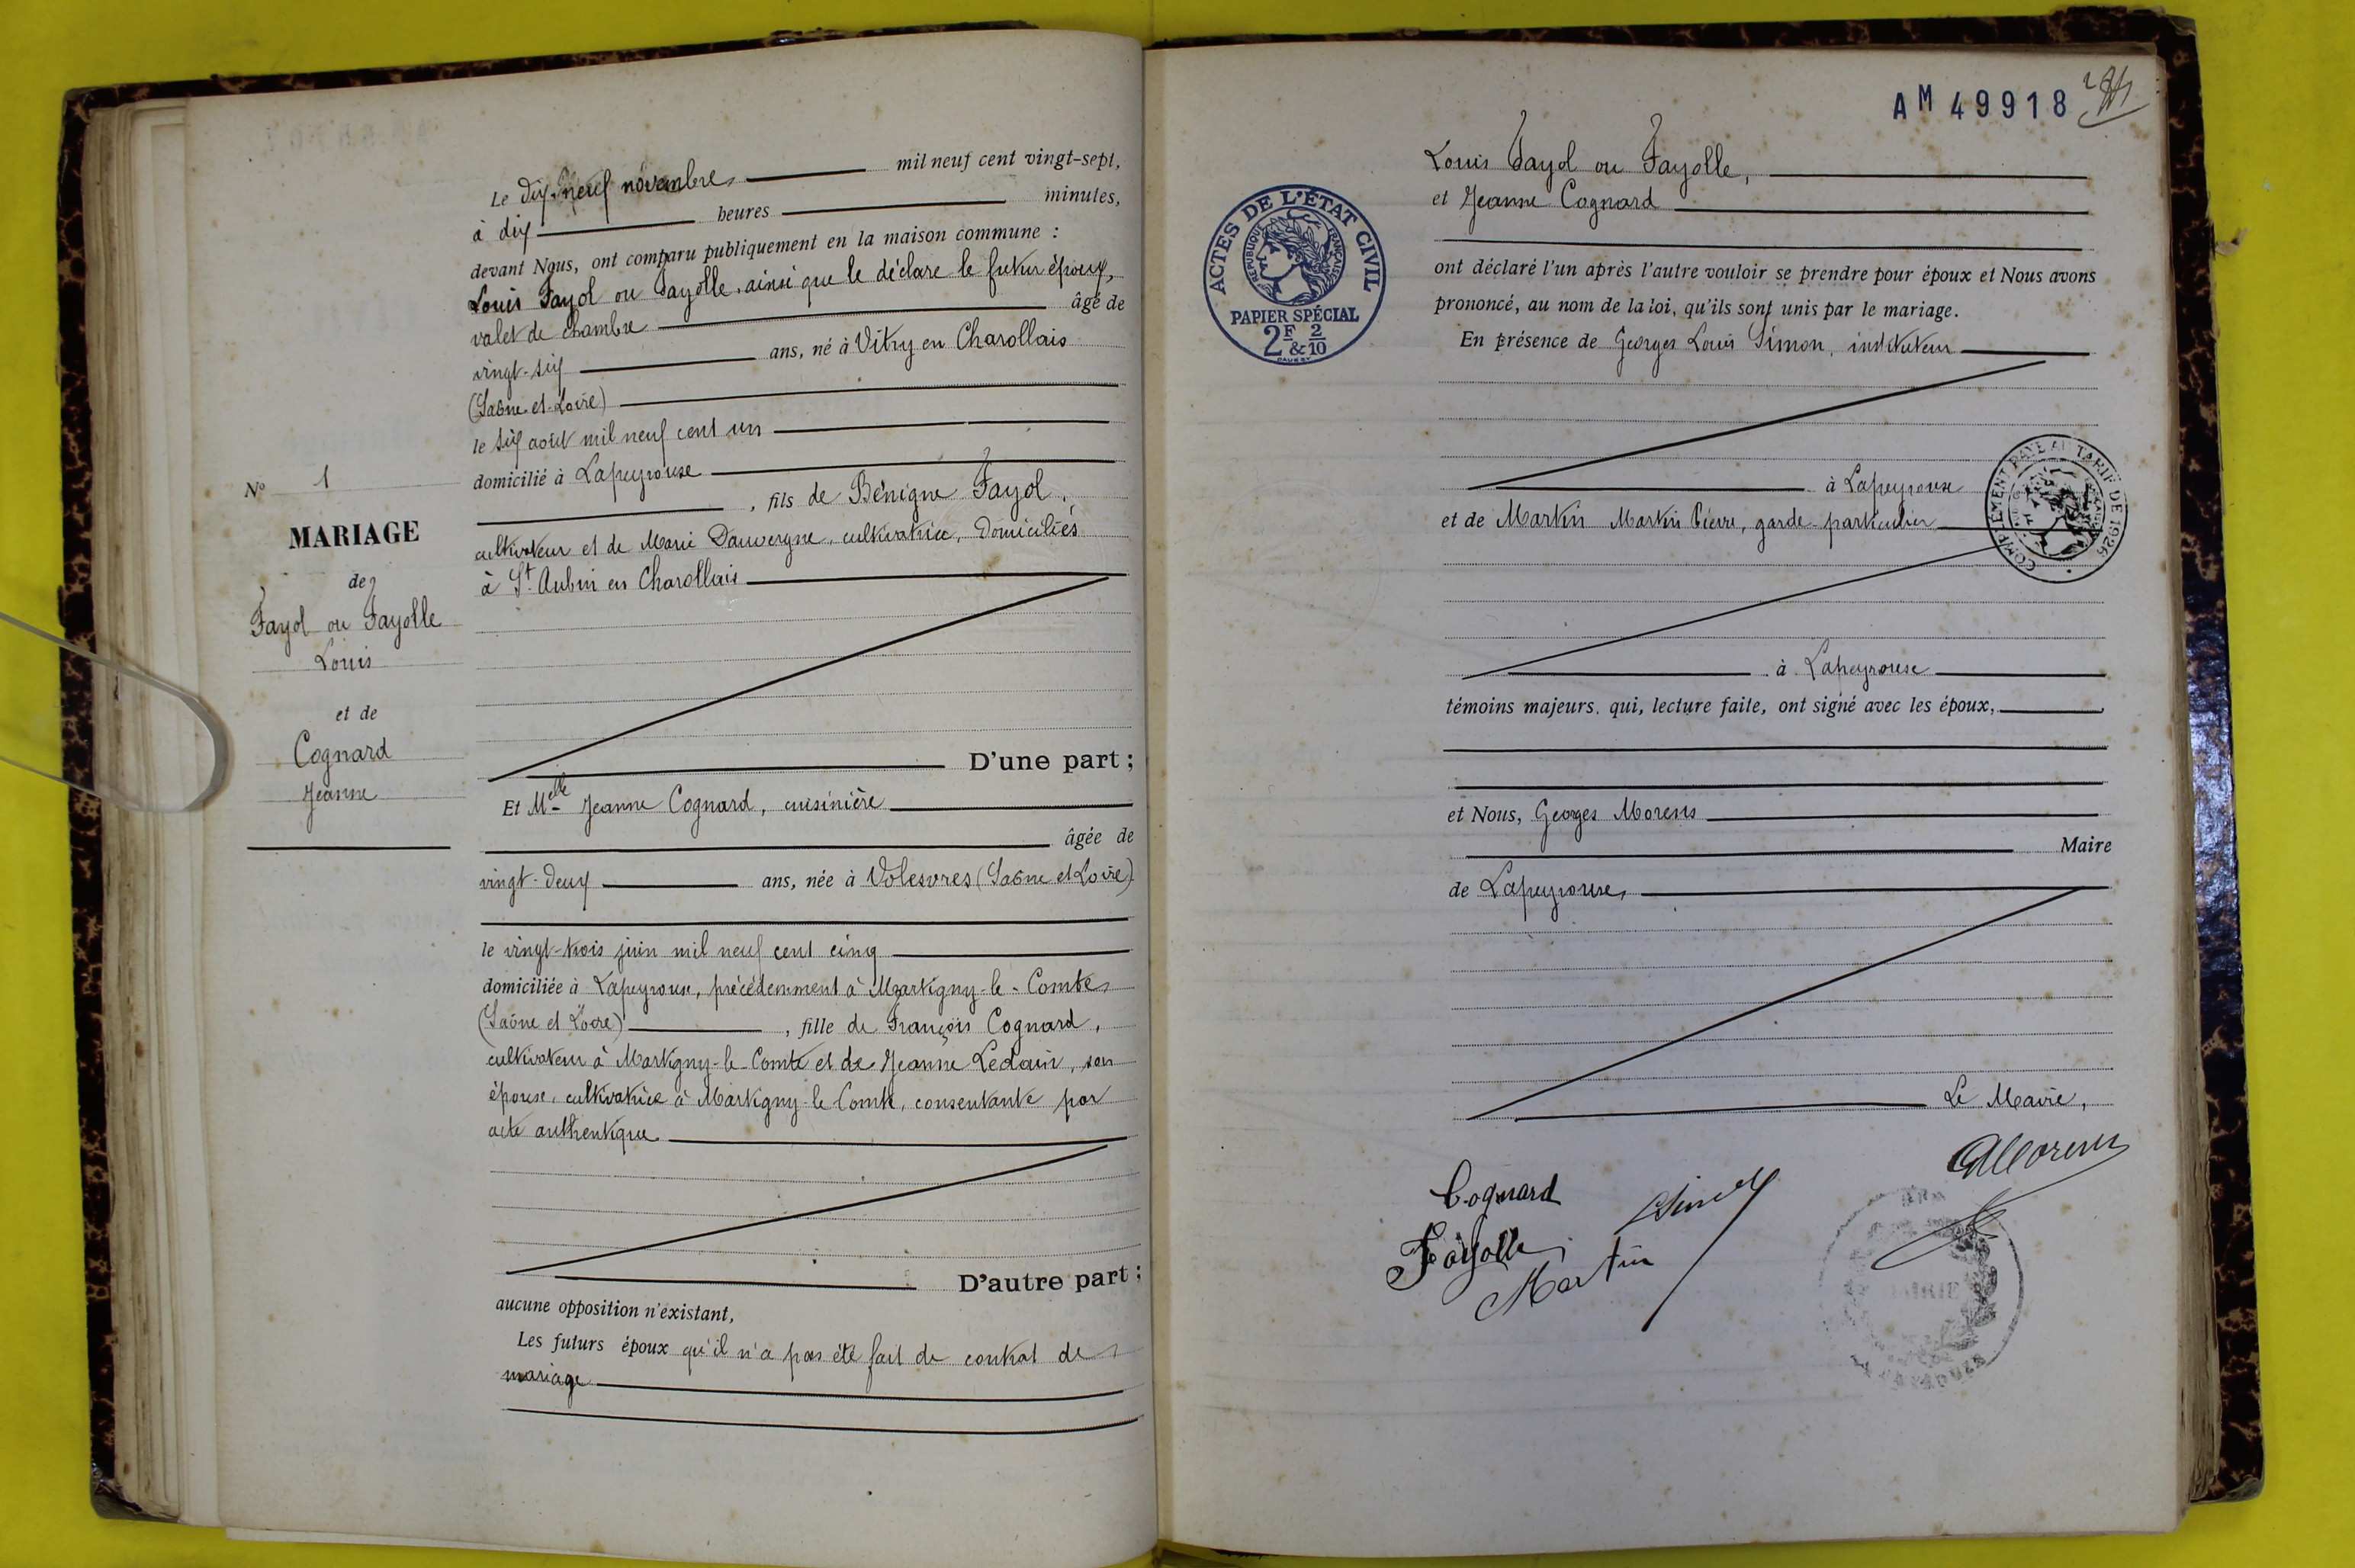 Le dix-neuf novembre mil neuf cent vingt-sept,
à dix heures minutes,
devant Nous, ont comparu publiquement en la maison commune :
Louis Fayol ou Fayolle, ainsi que le déclare le futur époux,
valet de chambre âgé de
vingt-six ans, né à Vitry en Charollais
(Saône-et-Loire)
le six août mil neuf cent un
domicilié à Lapeyrouse
, fils de Bénigne Fayol,
cultivateur et de Marie Dauvergne, cultivatrice, domiciliés
à St Aubin en Charollais
D'une part ;
Et Melle Jeanne Cognard, cuisinière
âgée de
vingt-deux ans, née à Volesvres (Saône et Loire)
le vingt-trois juin mil neuf cent cinq
domiciliée à Lapeyrouse, précédemment à Martigny-le-Comte
(Saône et Loire) , fille de François Cognard,
cultivateur à Martigny-le-Comte et de Jeanne Ledain, son
épouse, cultivatrice à Martigny-le-Comte, consentante par
acte authentique
D'autre part ;
aucune opposition n'existant,
Les futurs époux qu'il n'a pas été fait de contrat de
mariage
N° 1
MARIAGE
de
Fayol ou Fayolle
Louis
et de
Cognard
Jeanne
AM 49918
ACTES DE L'ÉTAT CIVIL
REPUBLIQUE FRANÇAISE
PAPIER SPÉCIAL
2F & 2/10
Louis Fayol ou Fayolle,
et Jeanne Cognard
ont déclaré l'un après l'autre vouloir se prendre pour époux et Nous avons
prononcé, au nom de la loi, qu'ils sont unis par le mariage.
En présence de Georges Louis Simon, instituteur
à Lapeyrouse
COMPLÉMENT PAYÉ AU TARIF DE 1926
et de Martin Martin Pierre, garde-particulier
à Lapeyrouse
témoins majeurs. qui, lecture faite, ont signé avec les époux,
et Nous, Georges Morens
Maire
de Lapeyrouse,
Le Maire,
GMorens
Cognard
Fayolle
Martin
MAIRIE